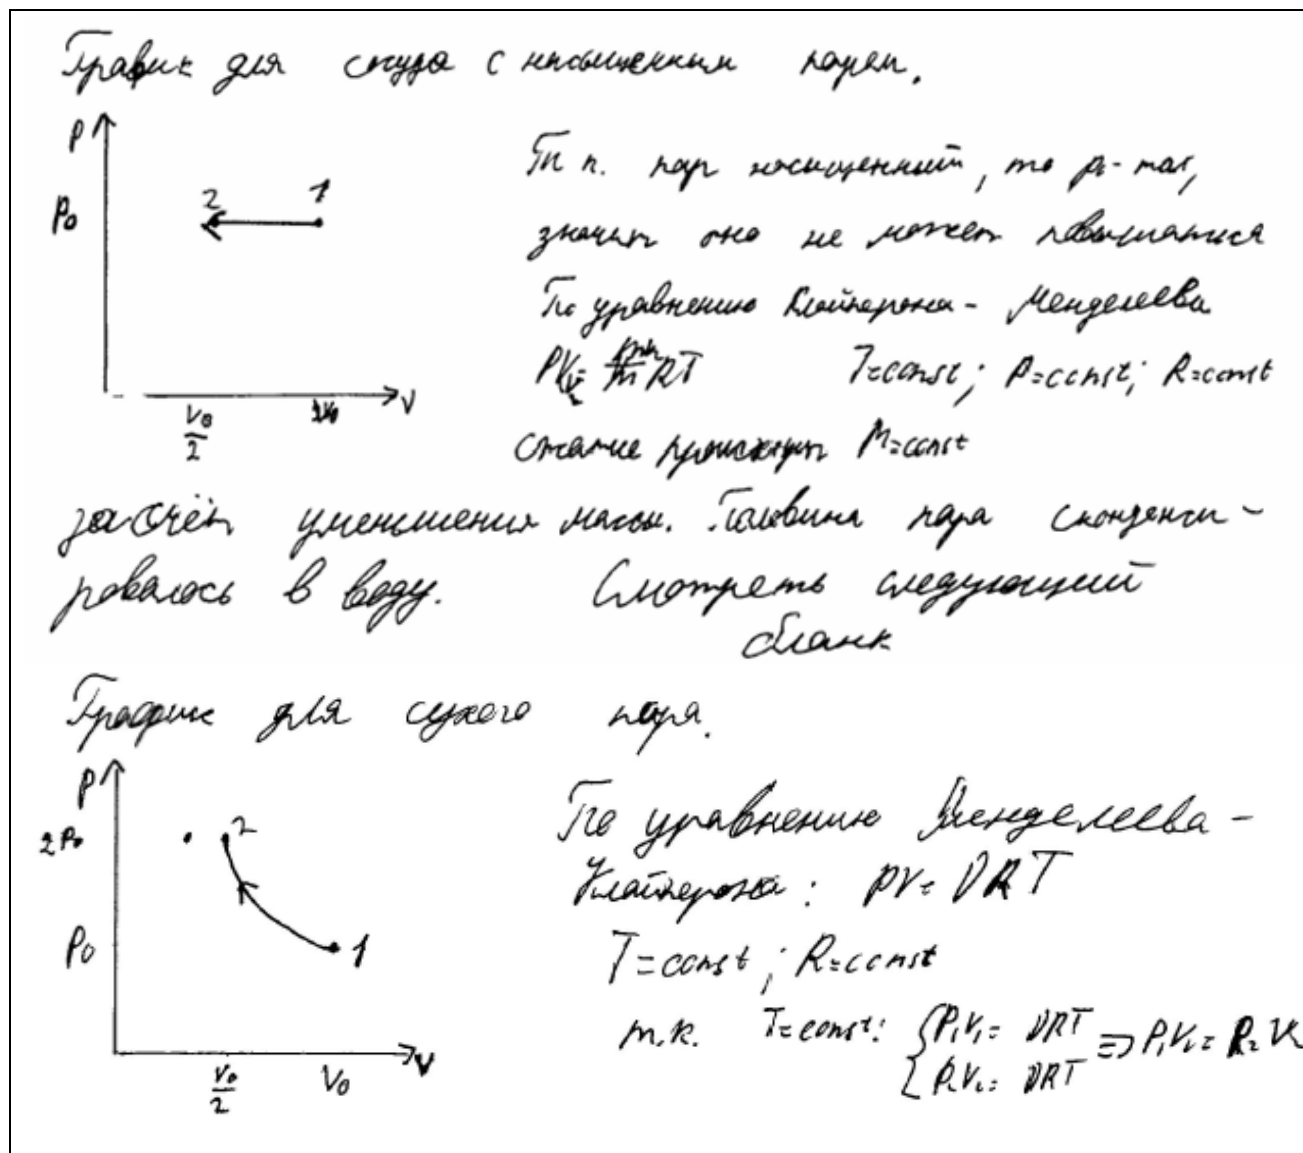 График для сосуда с насыщенным паром.
P
P₀
2
1
V₀/2
V₀
V
Т.к. пар насыщенный, то p - max,
значит оно не может повышаться
По уравнению Клайперона - Менделеева
PV = m/M RT T=const; P=const; R=const
сжатие происходит M=const
за счёт уменьшения массы. Половина пара сконденси-
ровалось в воду. Смотреть следующий
бланк
График для сухого пара.
P
2P₀
2
P₀
1
V₀/2
V₀
V
По уравнению Менделеева -
Клайперона: pV = νRT
T=const; R=const
т.к. T=const: { P₁V₁ = νRT
P₂V₂ = νRT ⇒ P₁V₁ = P₂V₂